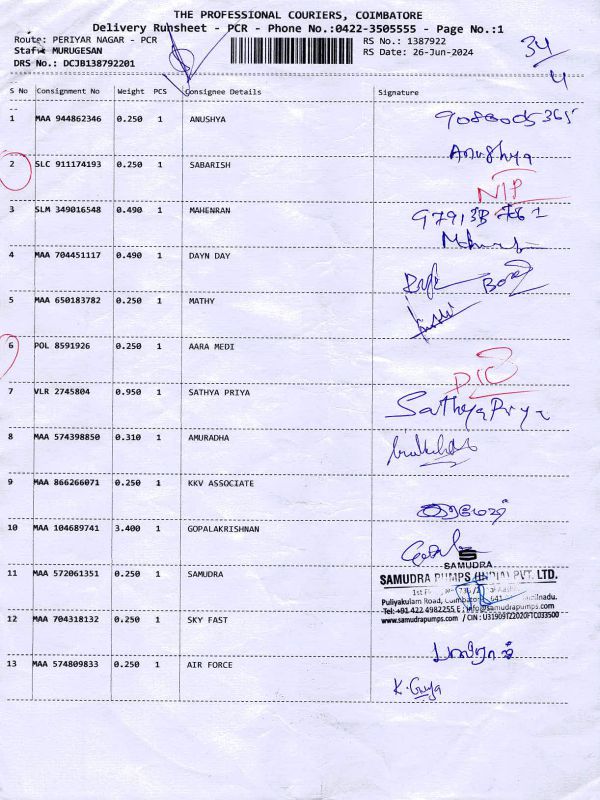 THE PROFESSIONAL COURIERS, COIMBATORE
Delivery Runsheet - PCR - Phone No.:0422-3505555 - Page No.:1
Route: PERIYAR NAGAR - PCR
RS No.: 1387922
Staff: MURUGESAN
RS Date: 26-Jun-2024
DRS No.: DCJB138792201
34/4
S No Consignment No Weight PCS Consignee Details Signature
1 MAA 944862346 0.250 1 ANUSHYA 9080005365
Anushya
2 SLC 911174193 0.250 1 SABARISH
3 SLM 349016548 0.490 1 MAHENRAN
4 MAA 704451117 0.490 1 DAYN DAY
5 MAA 650183782 0.250 1 MATHY
6 POL 8591926 0.250 1 AARA MEDI
7 VLR 2745804 0.950 1 SATHYA PRIYA
SathyaPriya
8 MAA 574398850 0.310 1 AMURADHA
9 MAA 866266071 0.250 1 KKV ASSOCIATE
10 MAA 104689741 3.400 1 GOPALAKRISHNAN
SAMUDRA
11 MAA 572061351 0.250 1 SAMUDRA
SAMUDRA PUMPS (INDIA) PVT. LTD.
Puliyakulam Road, Coimbatore - 641
Tel: +91 422 4982255 E: info@samudrapumps.com
www.samudrapumps.com / CIN : U31909TZ2020FTC033500
12 MAA 704318132 0.250 1 SKY FAST
13 MAA 574809833 0.250 1 AIR FORCE